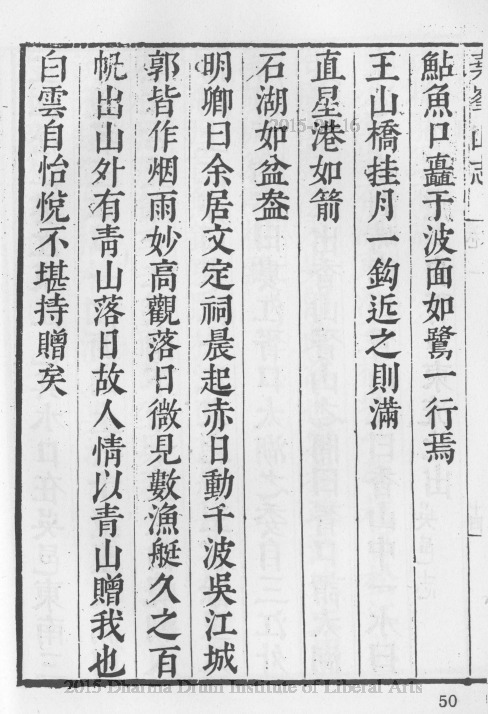 鮎魚口矗于波面如鷺一行焉
王山橋挂月一鈎近之則滿
直星港如箭
石湖如盆盎
明卿曰余居文定祠晨起赤日動千波吳江城
郭皆作烟雨妙高觀落日微見數漁艇久之百
帆出山外有青山落日故人情以青山贈我也
白雲自怡悅不堪持贈矣
2015-03-16
2015 Dharma Drum Institute of Liberal Arts
50